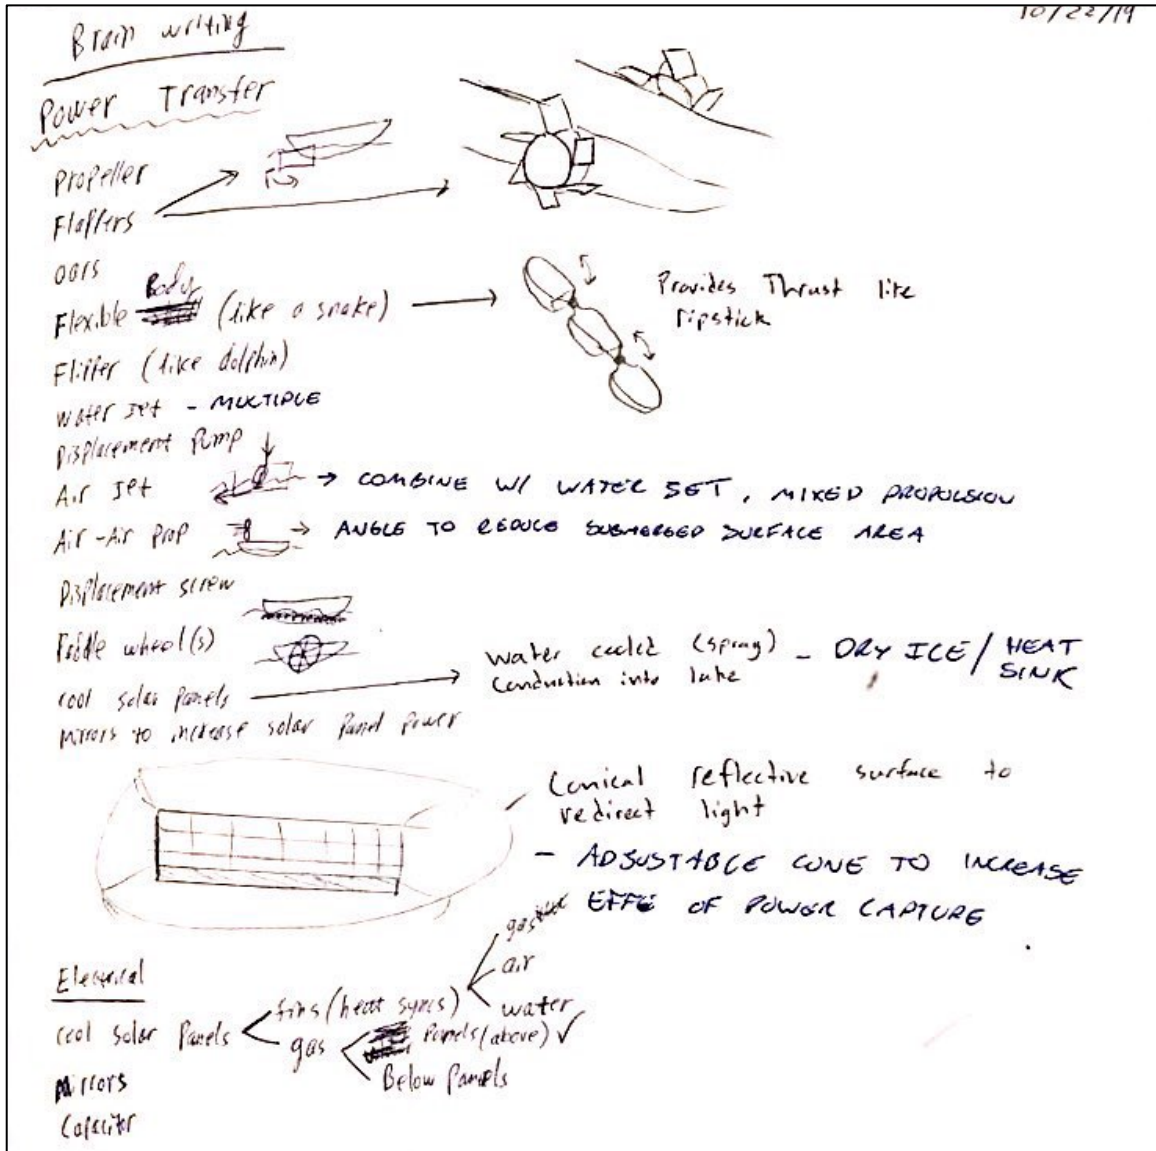 10/22/19
Brain writing
Power Transfer
Propeller
Flappers
oars
Flexible Body (like a snake)
Provides Thrust like
ripstick
Flipper (like dolphin)
water Jet - MULTIPLE
Displacement Pump
Air Jet → COMBINE W/ WATER JET, MIXED PROPULSION
Air-Air prop → ANGLE TO REDUCE SUBMERGED SURFACE AREA
Displacement screw
Paddle wheel(s)
cool solar panels
water cooled (spray) - DRY ICE / HEAT
conduction into lake SINK
Mirrors to increase solar Panel Power
Conical reflective surface to
redirect light
- ADJUSTABLE CONE TO INCREASE
EFFE OF POWER CAPTURE
Electrical
cool solar Panels
fins (heat syncs)
gas
air
water
gas
Panels (above) ✓
Below Panels
Mirrors